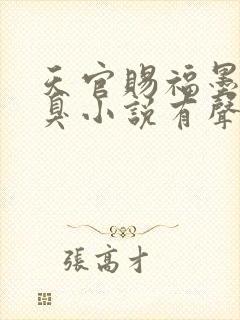 天官賜福墨
臭小說有聲
張高才